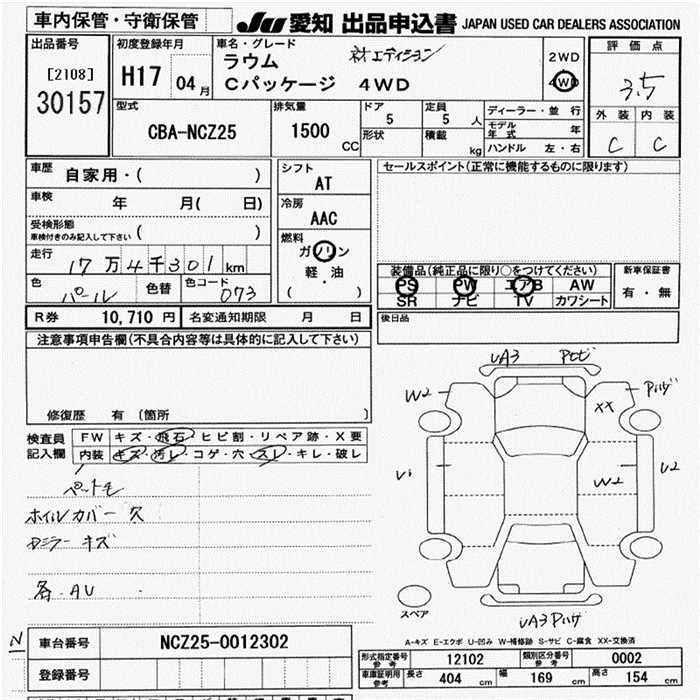 車内保管・守衛保管
JU 愛知 出品申込書 JAPAN USED CAR DEALERS ASSOCIATION
出品番号
[2108]
30157
初度登録年月
H17 04月
車名・グレード
ラウム
Cパッケージ 4WD
エディション
2WD
4WD
評価点
3.5
外装 内装
C C
型式
CBA-NCZ25
排気量
1500
CC
ドア
5
定員
5 人
形状
積載
kg
ディーラー・並 行
モデル年式 年
ハンドル 左・右
車歴
自家用・( )
車検
年 月( 日)
受検形態
車検付きのみ記入して下さい ( )
走行
17万4千301km
色
パール
色替
色コード
073
シフト
AT
冷房
AAC
燃料
ガソリン
軽・油
( )
セールスポイント(正常に機能するものに限ります)
装備品(純正品に限り○をつけてください)
PS PW エアB AW
SR ナビ TV カワシート
新車保証書
有・無
R券 10,710 円 名変通知期限 月 日
後日品
注意事項申告欄(不具合内容等は具体的に記入して下さい)
修復歴 有 (箇所 )
検査員
記入欄
FW キズ・飛石・ヒビ割・リペア跡・X要
内装 キズ・汚レ・コゲ・穴・スレ・キレ・破レ
ペットモ
ホイルカバー 欠
ミラー キズ
各.AU.
UA3
W2
XX
U1
W2
U2
UA3
スペア
A-キズ E-エクボ U-凹み W-補修跡 S-サビ C-腐食 XX-交換済
N
車台番号 NCZ25-0012302
登録番号
形式指定番号
参考
12102
類別区分番号
参考
0002
車庫証明用
参考
長さ 404 cm 幅 169 cm 高さ 154 cm